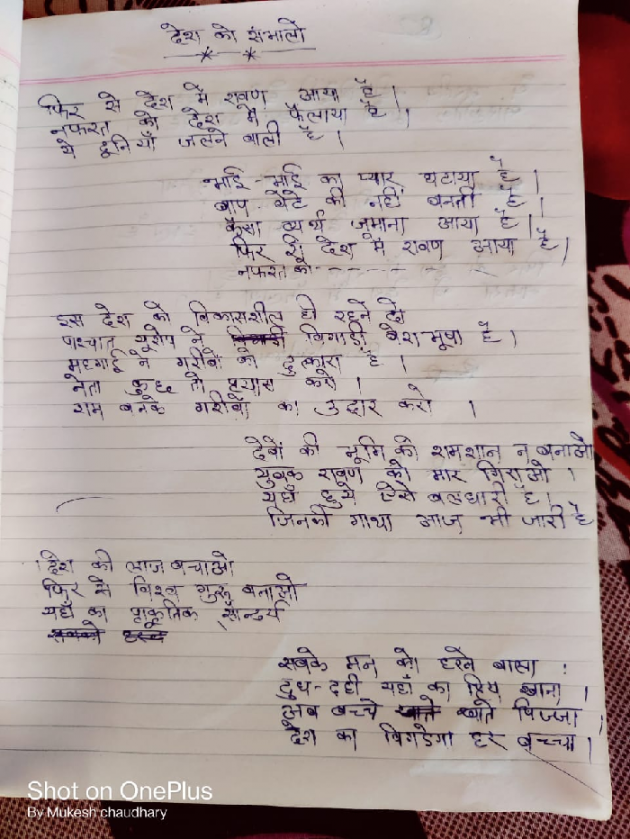 देश को संभालो
फिर से देश में रावण आया है।
नफरत को देश में फैलाया है।
ये दूनियाँ जलने वाली है।
भाई-भाई का प्यार घटाया है।
बाप-बेटे की नहीं बनती है।
कैसा व्यर्थ जमाना आया है।
फिर से देश में रावण आया है।
नफरत को- - - - - - -
इस देश को विकासशील ही रहने दो
पश्चात यूरोप ने बिगाड़ी वेशभूषा है।
महगाई ने गरीबों को दुत्कारा है।
नेता कुछ तो प्रयास करो।
राम बनके गरीबों का उद्दार करो।
देवों की भूमि को शमशान न बनाओ
युवक रावण को मार गिराओ।
यहाँ हुये ऐसे बलधारी है।
जिनकी गाथा आज भी जारी है
देश की लाज बचाओ
फिर से विश्व गुरू बनालो
यहाँ का प्राकृतिक सौन्दर्य
सबके मन को हरने वाला।
दुध-दही यहाँ का प्रिय खाना।
अब बच्चे खाते पिज्जा।
देश का बिगडेगा हर बच्चा।
Shot on OnePlus
By Mukesh chaudhary